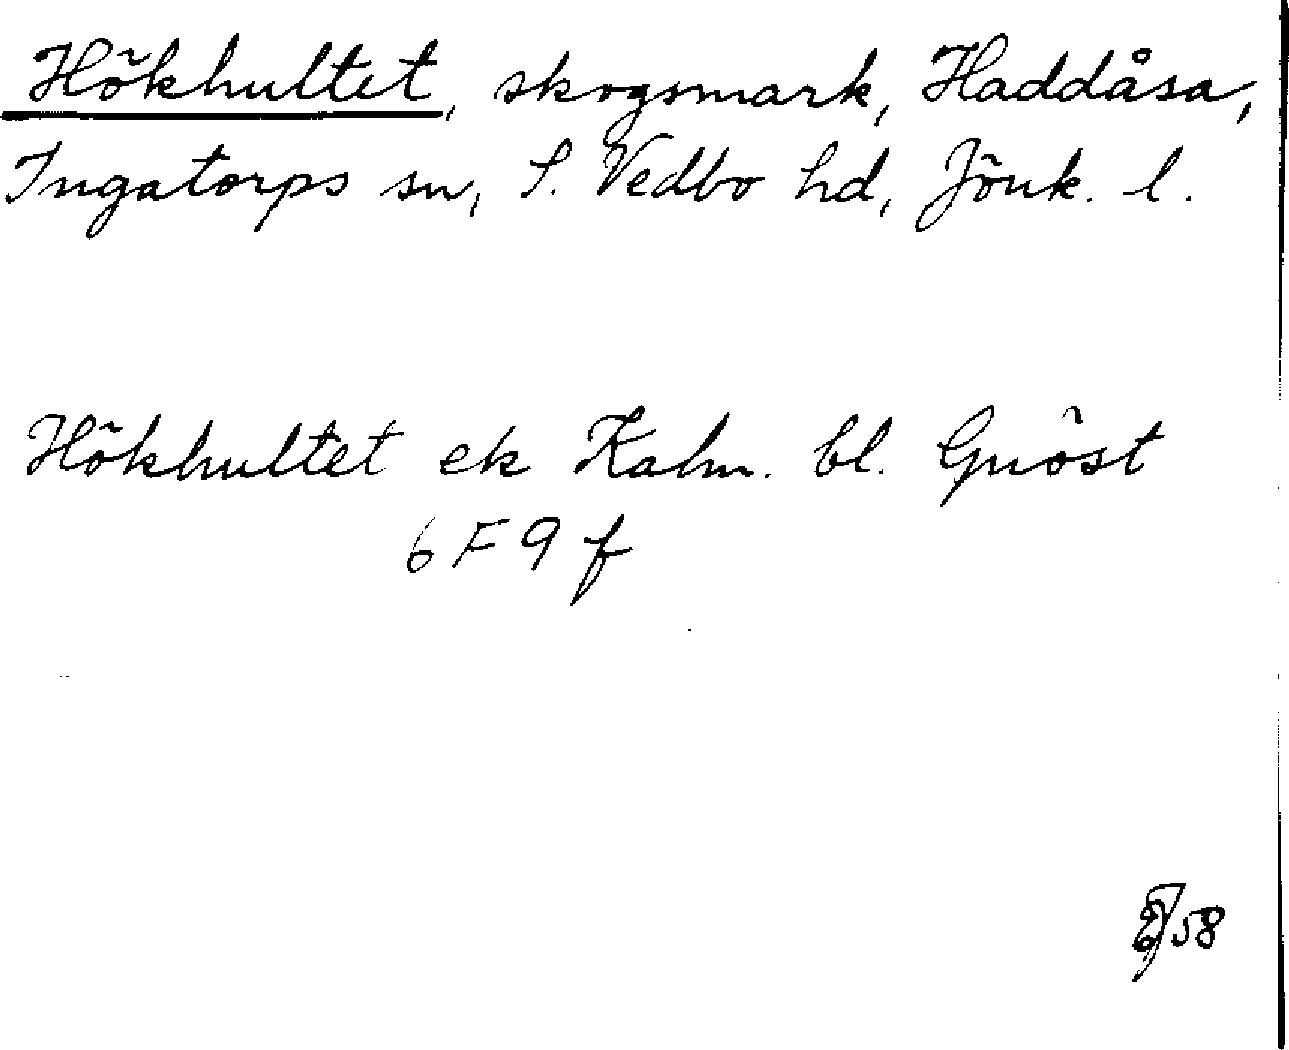 Hökhultet, skogsmark, Haddåsa,
Ingatorps sn, S. Vedbo hd, Jönk. l.
Hökhultet ek Kalm. bl. Gnöst
6 F 9 f
58